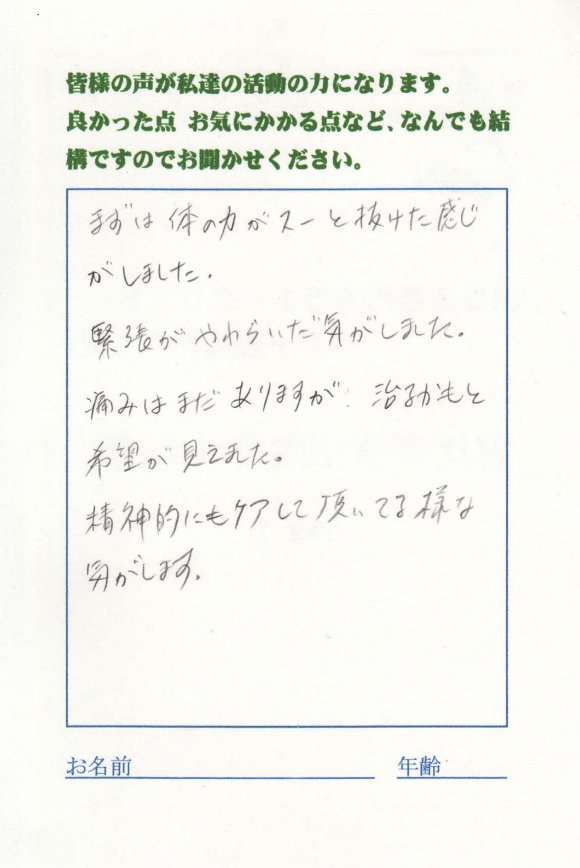 皆様の声が私達の活動の力になります。
良かった点 お気にかかる点など、なんでも結
構ですのでお聞かせください。
まずは体の力がスーと抜けた感じ
がしました。
緊張がやわらいだ気がしました。
痛みはまだありますが、治るかもと
希望が見えました。
精神的にもケアして頂いてる様な
気がします。
お名前
年齢